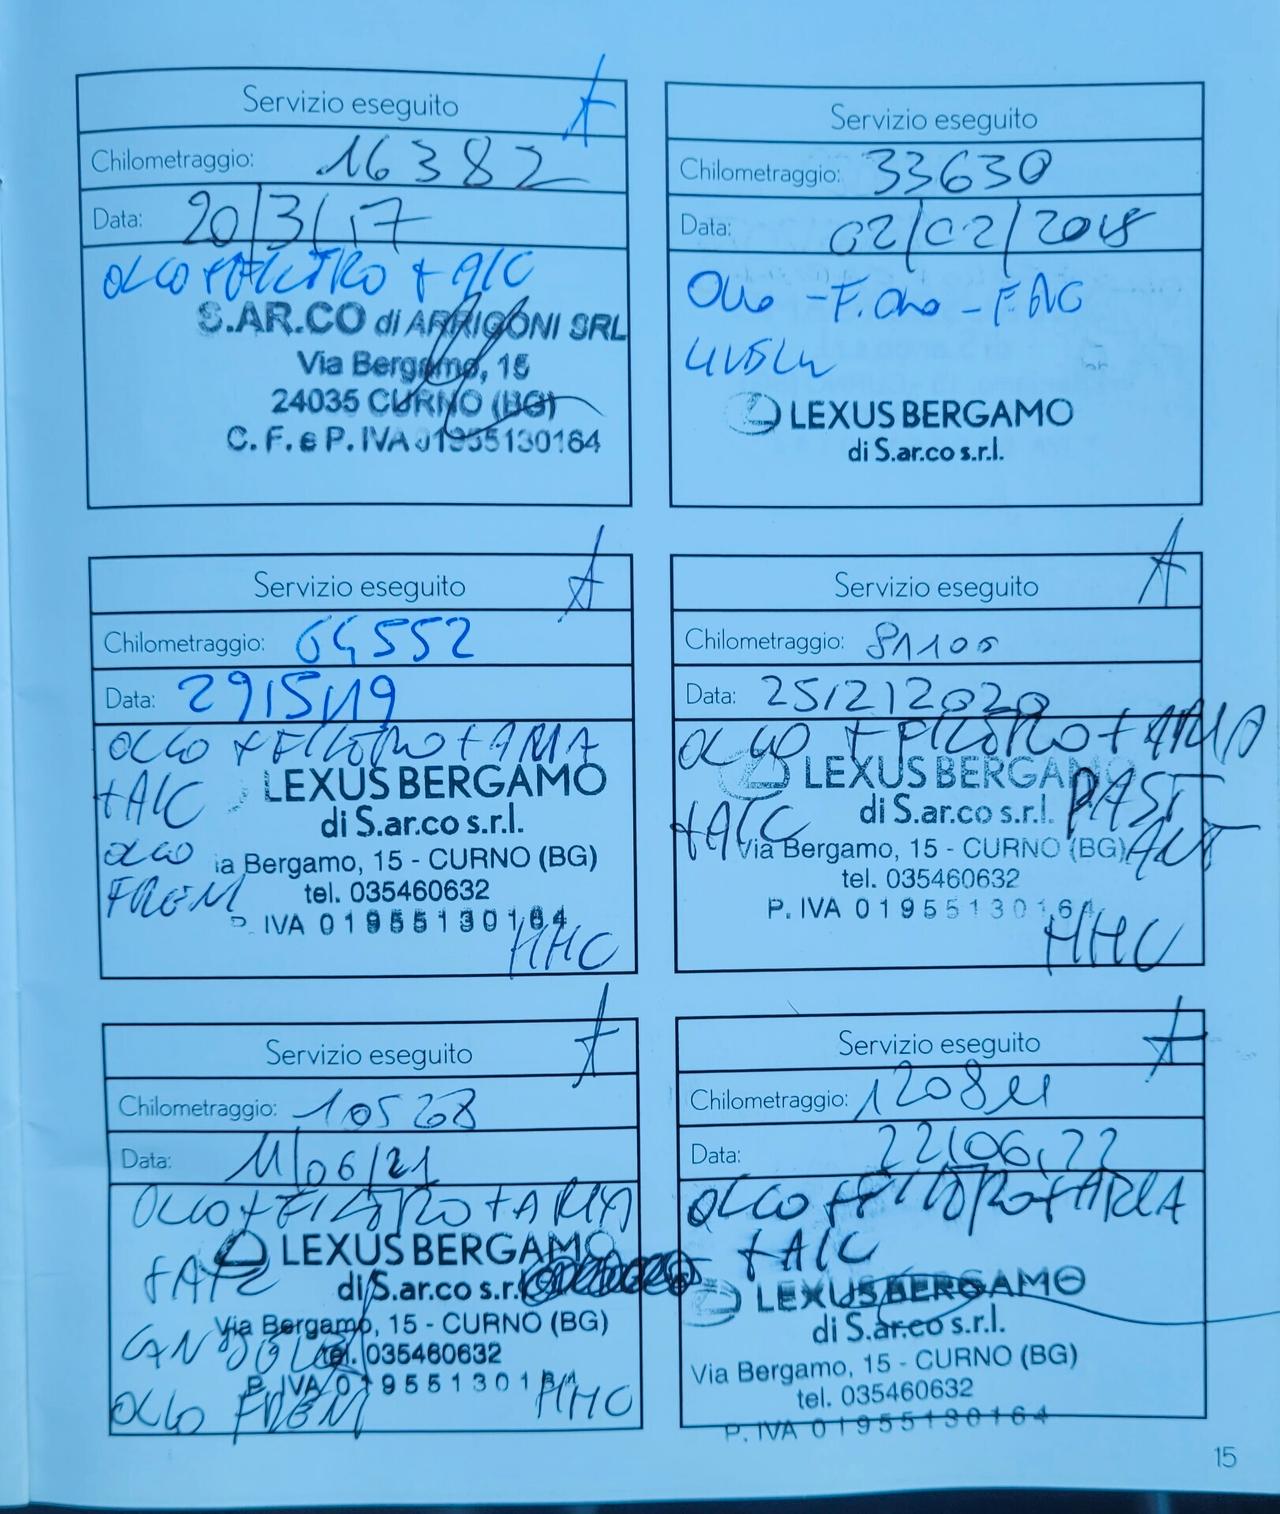 Servizio eseguito A
Chilometraggio: 16382
Data: 20/3/17
OLIO + FILTRO + A/C
S.AR.CO di ARRIGONI SRL
Via Bergamo, 15
24035 CURNO (BG)
C. F. e P. IVA 01955130164
Servizio eseguito
Chilometraggio: 33630
Data: 02/02/2018
Olio - F. Olio - F. A/C
LEXUS BERGAMO
di S.ar.co s.r.l.
Servizio eseguito A
Chilometraggio: 64552
Data: 29/5/19
OLIO + FILTRO + ARIA
+ A/C
LEXUS BERGAMO
di S.ar.co s.r.l.
OLIO
FRENI
ia Bergamo, 15 - CURNO (BG)
tel. 035460632
P. IVA 01955130164
HHC
Servizio eseguito A
Chilometraggio: 81100
Data: 25/2/2020
OLIO + FILTRO + ARIA
LEXUS BERGAMO
PAST
di S.ar.co s.r.l.
+ A/C
ANT
Via Bergamo, 15 - CURNO (BG)
tel. 035460632
P. IVA 0195513016
HHC
Servizio eseguito A
Chilometraggio: 105268
Data: 11/06/21
OLIO + FILTRO + ARIA
LEXUS BERGAMO
di S.ar.co s.r.
Via Bergamo, 15 - CURNO (BG)
CANDELE
tel. 035460632
P. IVA 01955130164
OLIO FRENI
HHC
Servizio eseguito A
Chilometraggio: 120811
Data: 22/06/22
OLIO + FILTRO + ARIA
+ A/C
LEXUS BERGAMO
di S.ar.co s.r.l.
Via Bergamo, 15 - CURNO (BG)
tel. 035460632
P. IVA 01955130164
15